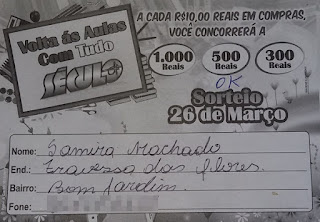 Volta ás Aulas
Com Tudo
SÉCULO
A CADA R$10,00 REAIS EM COMPRAS,
VOCÊ CONCORRERÁ A
1.000 Reais
500 Reais
300 Reais
OK
Sorteio
26 de Março
Nome: Samira Machado
End.: Travessa das flores.
Bairro: Bom Jardim.
Fone: